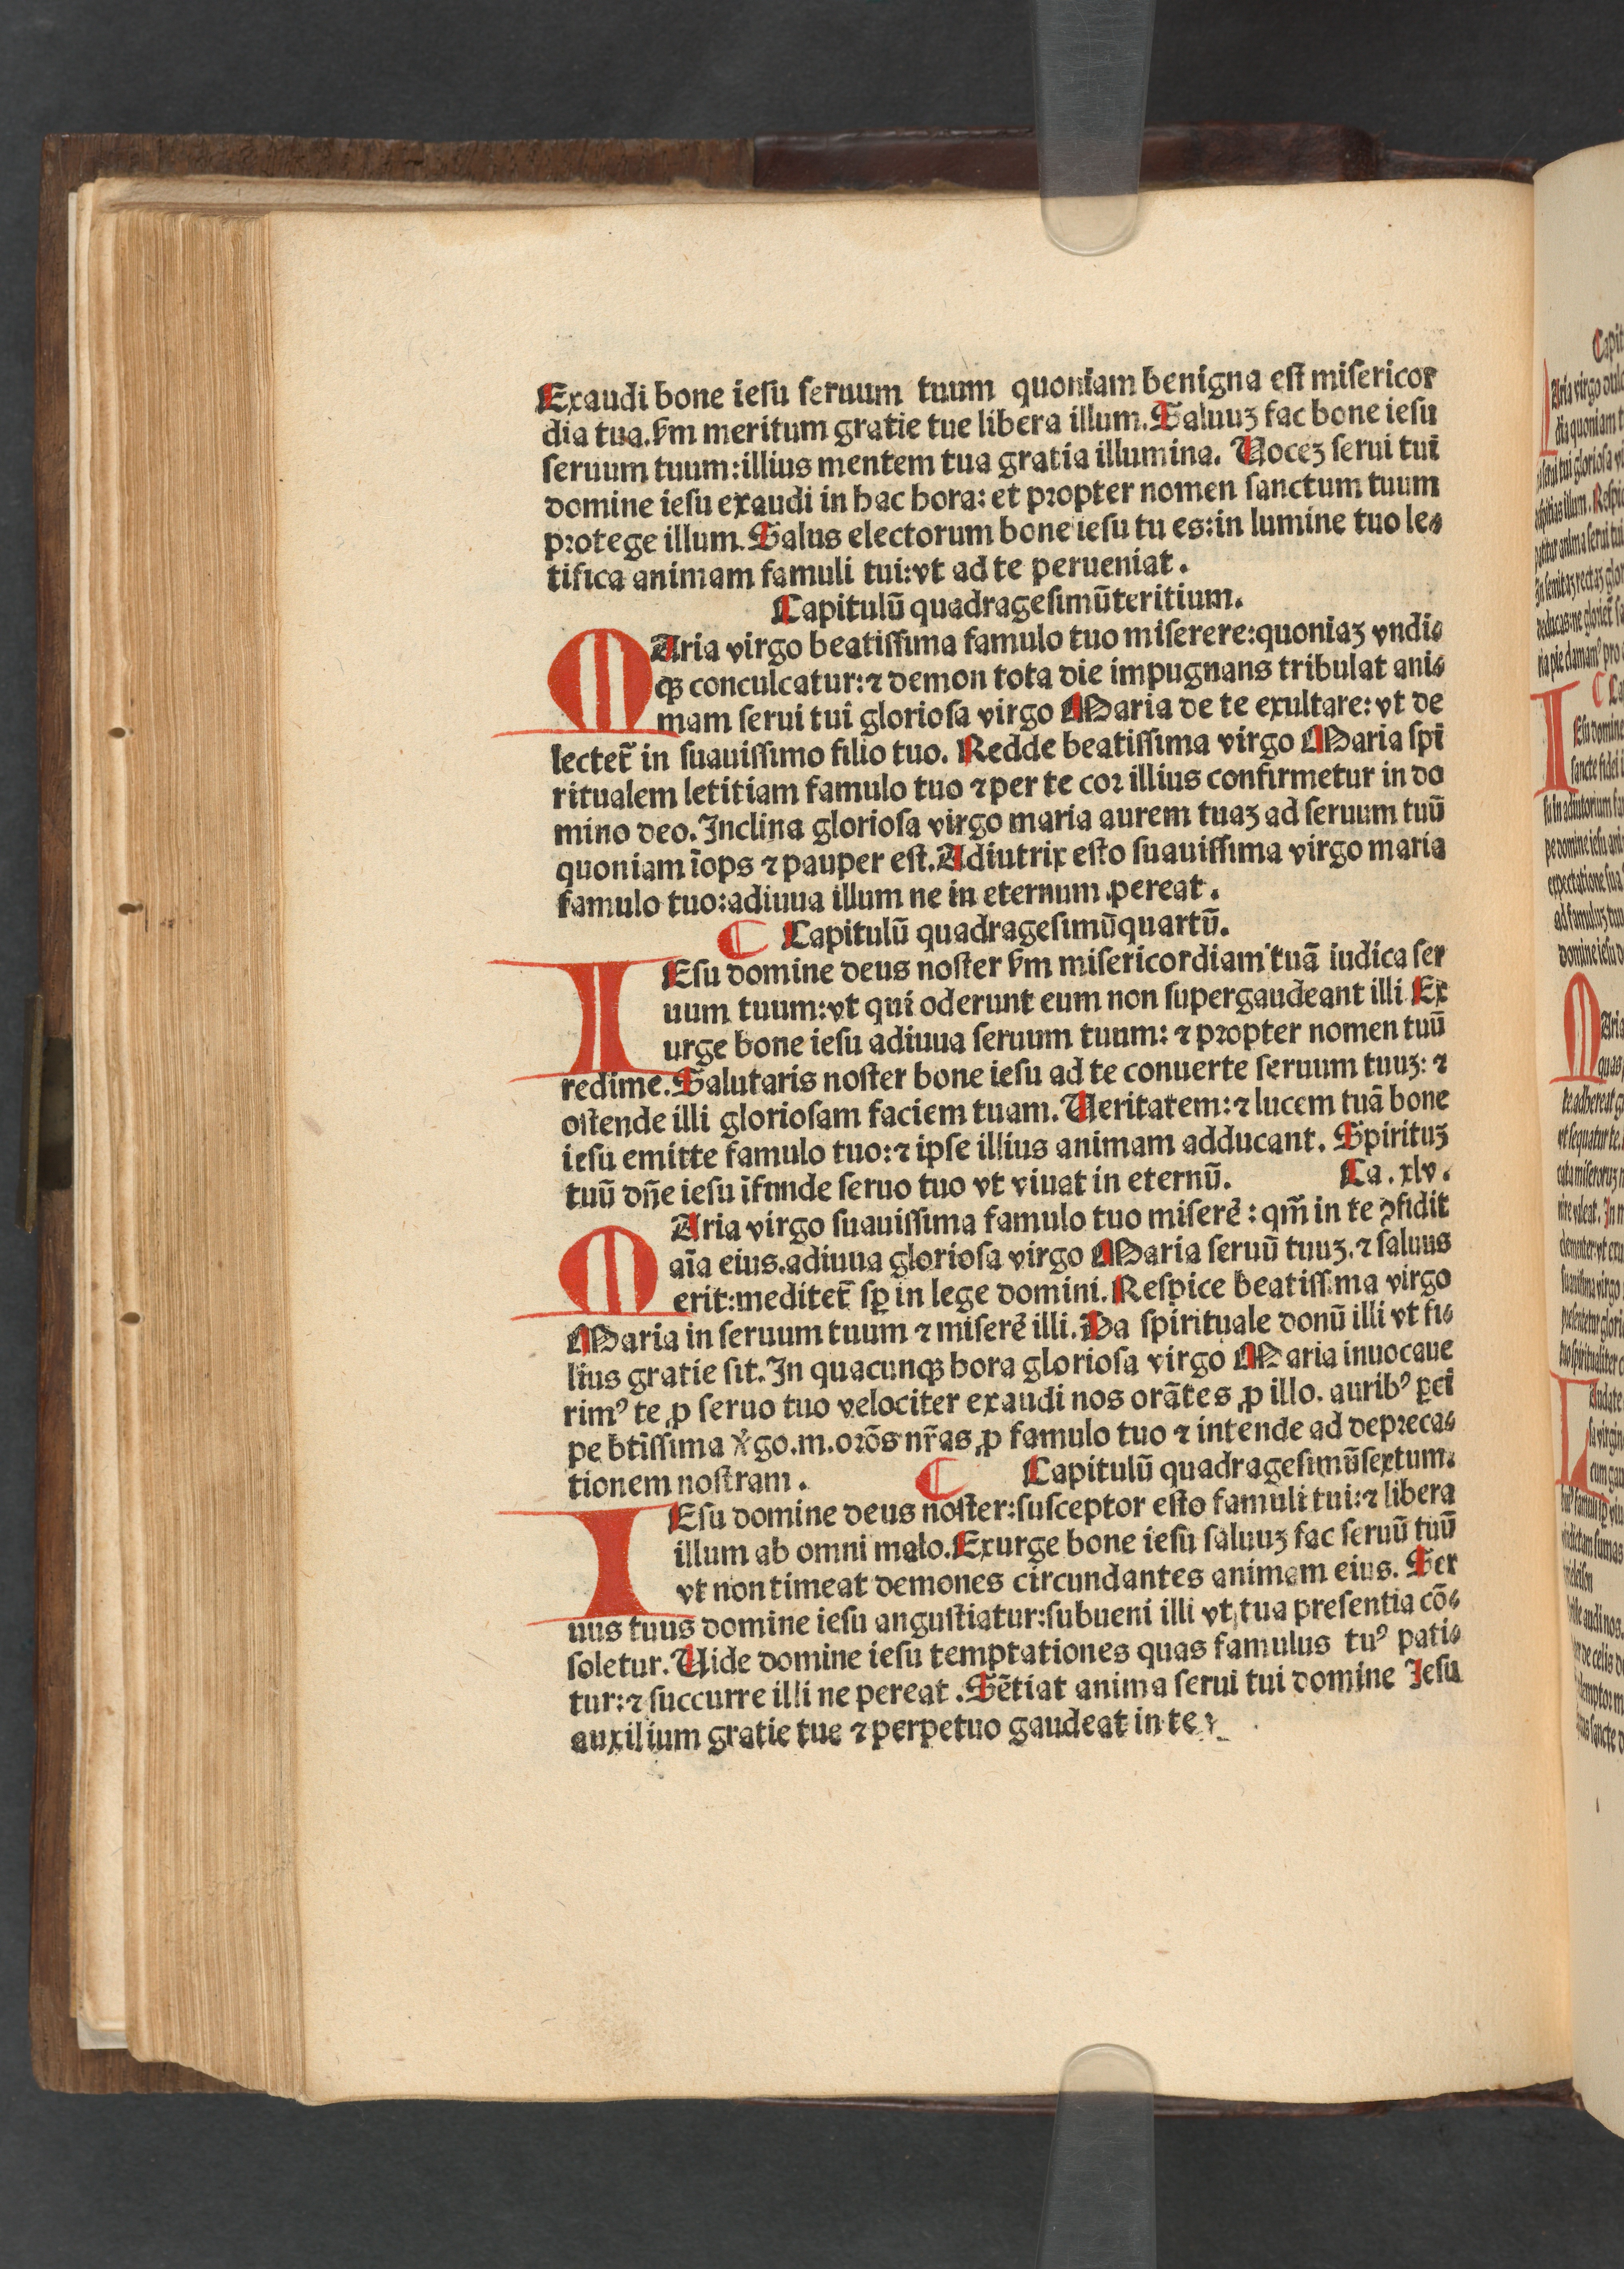 Exaudi bone iesu seruum tuum quoniam benigna est misericor
dia tua. km meritum gratie tue libera illum. Saluuʒ fac bone iesu
seruum tuum: illius mentem tua gratia illumina. Uoceʒ serui tui
domine iesu exaudi in hac hora: et propter nomen sanctum tuum
protege illum. Salus electorum bone iesu tu es: in lumine tuo le⸗
tifica animam famuli tui: vt ad te perueniat.
Capitulū quadragesimūteritium.
MAria virgo beatissima famulo tuo miserere: quoniaʒ vndi⸗
qꝫ conculcatur: ⁊ demon tota die impugnans tribulat ani⸗
mam serui tui gloriosa virgo Maria de te exultare: vt de
lectet̄ in suauissimo filio tuo. Redde beatissima virgo Maria spi
ritualem letitiam famulo tuo ⁊ per te cor illius confirmetur in do
mino deo. Inclina gloriosa virgo maria aurem tuaʒ ad seruum tuū
quoniam īops ⁊ pauper est. Adiutrix esto suauissima virgo maria
famulo tuo: adiuua illum ne in eternum pereat.
¶ Capitulū quadragesimūquartū.
IEsu domine deus noster km misericordiam tuā iudica ser
uum tuum: vt qui oderunt eum non supergaudeant illi Ex
urge bone iesu adiuua seruum tuum: ⁊ propter nomen tuū
redime. Salutaris noster bone iesu ad te conuerte seruum tuuʒ: ⁊
ostende illi gloriosam faciem tuam. Ueritatem: ⁊ lucem tuā bone
iesu emitte famulo tuo: ⁊ ipse illius animam adducant. Spirituʒ
tuū dn̄e iesu īfunde seruo tuo vt viuat in eternū. Ca. xlv.
MAria virgo suauissima famulo tuo miserē: qm̄ in te ꝯfidit
aīa eius. adiuua gloriosa virgo Maria seruū tuuʒ. ⁊ saluus
erit: meditet̄ sp̄ in lege domini. Respice beatissima virgo
Maria in seruum tuum ⁊ miserē illi. Da spirituale donū illi vt fi⸗
lius gratie sit. In quacunqꝫ hora gloriosa virgo Maria inuocaue
rimꝰ te ꝓ seruo tuo velociter exaudi nos orātes ꝓ illo. auribꝰ ꝑci
pe btīssima v̄go. m. orōs nr̄as ꝓ famulo tuo ⁊ intende ad depreca⸗
tionem nostram. ¶ Capitulū quadragesimūsextum.
IEsu domine deus noster: susceptor esto famuli tui: ⁊ libera
illum ab omni malo. Exurge bone iesu saluuʒ fac seruū tuū
vt non timeat demones circundantes animam eius. Ser
uus tuus domine iesu angustiatur: subueni illi vt tua presentia cō⸗
soletur. Uide domine iesu temptationes quas famulus tuꝰ pati⸗
tur: ⁊ succurre illi ne pereat. Sētiat anima serui tui domine Iesu
auxilium gratie tue ⁊ perpetuo gaudeat in te